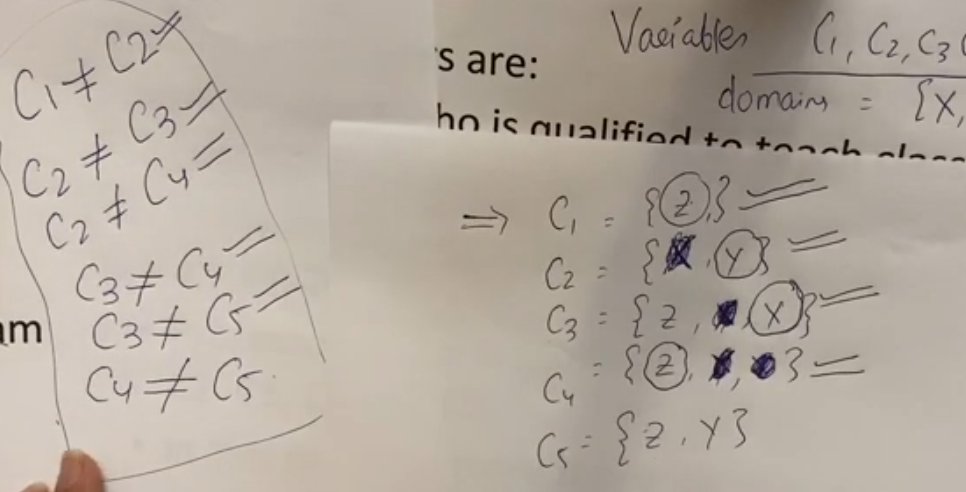 C1 ≠ C2
C2 ≠ C3
C2 ≠ C4
C3 ≠ C4
C3 ≠ C5
C4 ≠ C5
am
s are:
ho is qualified to teach
Variables C1, C2, C3
domains = {X,
⇒ C1 = {Z,}
C2 = { , Y}
C3 = {Z, , X}
C4 = {Z, , }
C5 = {Z, Y}